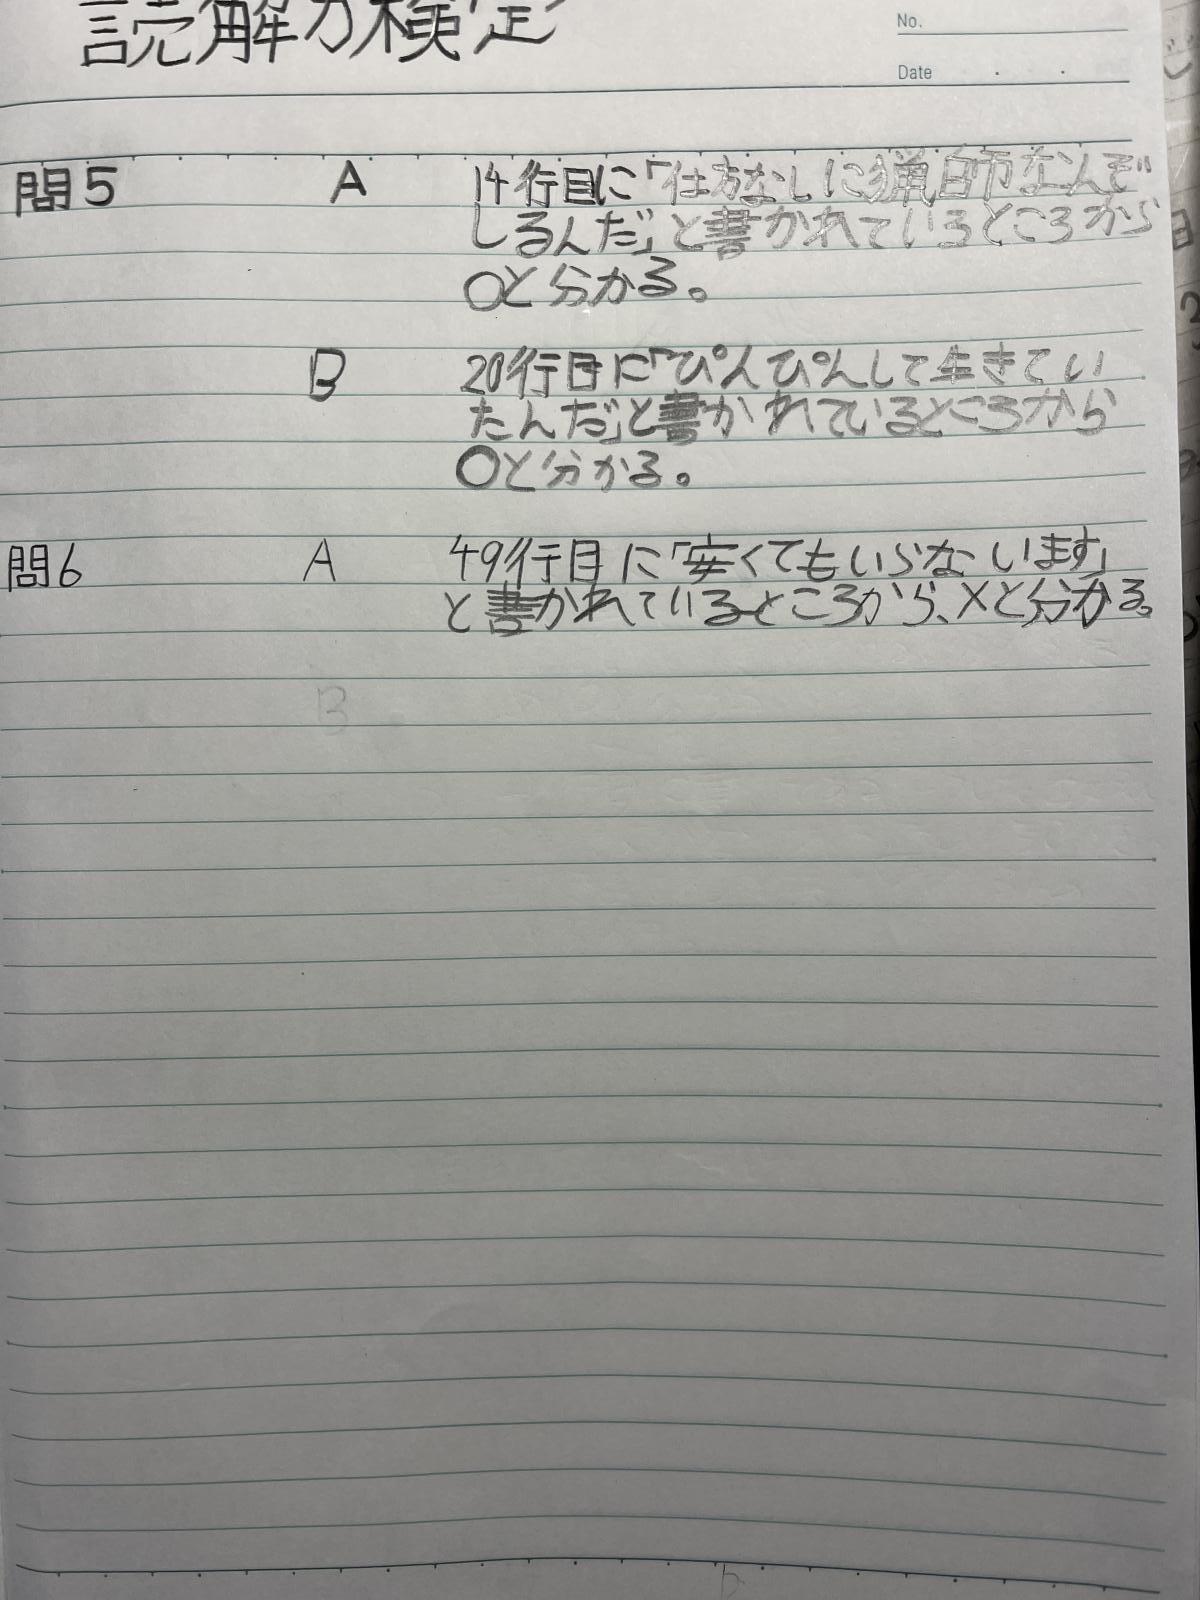 読解力検定
No.
Date
問5 A 14行目に「仕方なしに猟師なんぞ
しるんだ」と書かれているところから
○と分かる。
B 20行目に「ぴんぴんして生きてい
たんだ」と書かれているところから
○と分かる。
問6 A 49行目に「安くてもいらないます」
と書かれているところから、×と分かる。
B